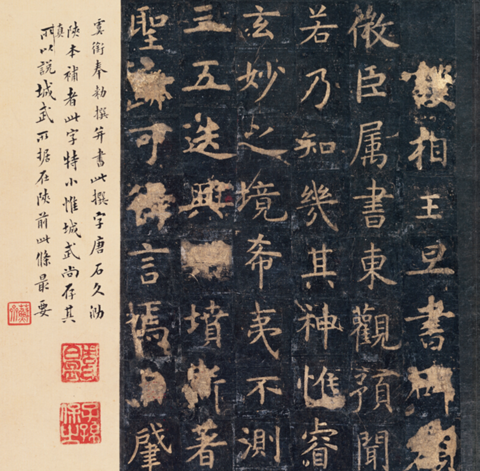 護相王旦書碑額
微臣属書東觀預聞
若乃知幾其神惟睿
玄妙之境希夷不測
三五迭興典墳斯著
聖迹可得言焉自肇
虞銜奉勅撰并書此撰字唐石久泐
陝本補者此字特小惟城武尚存其
真
所以說城武所据在陝前此條最要